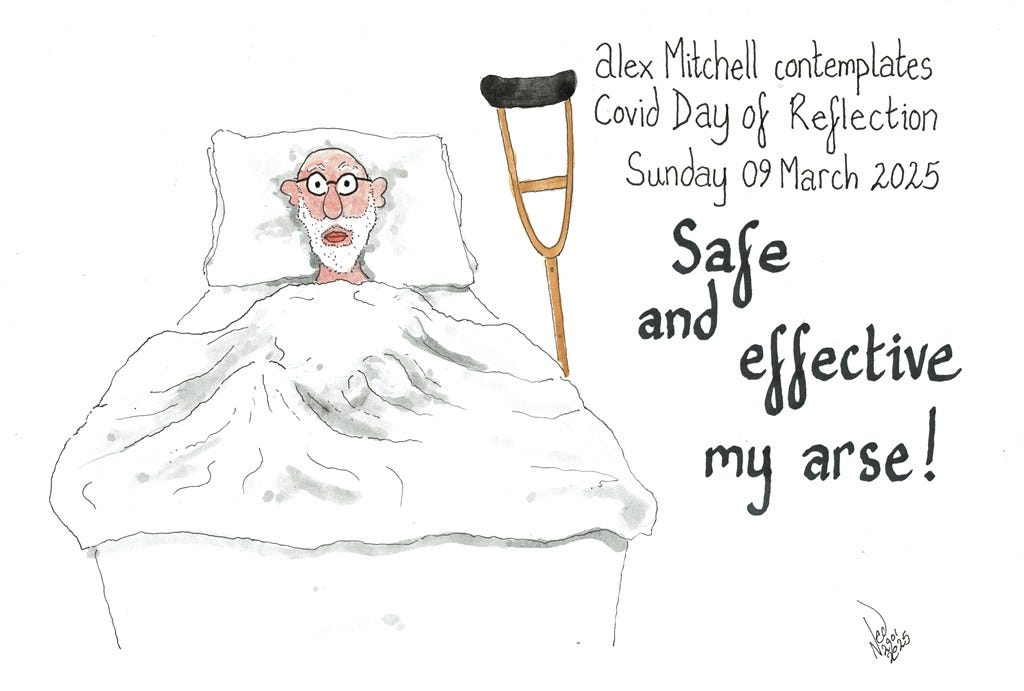 alex Mitchell contemplates
Covid Day of Reflection
Sunday 09 March 2025
Safe
and
effective
my arse!